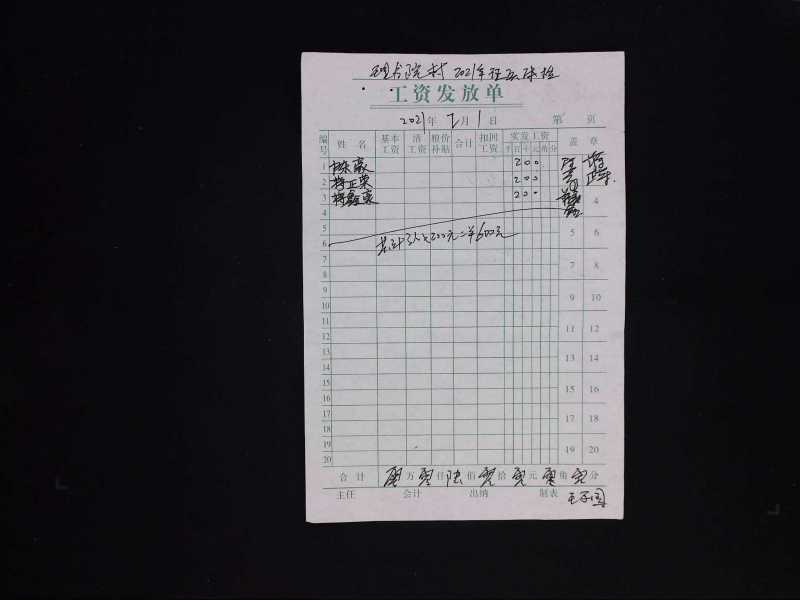 2021年
工资发放单
2021年7月1日 第 页
编号 姓名 基本工资 活工资 粮价补贴 合计 扣回工资 实发工资 千百十元角分 盖章
1 陈豪 200
2 蒋正荣 200
3 200
4 4
5 5 6
6 共计3人×200元=600元
7 7 8
8
9 9 10
10
11 11 12
12
13 13 14
14
15 15 16
16
17 17 18
18
19 19 20
20
合计 零万零仟陆佰零拾零元零角零分
主任 会计 出纳 制表